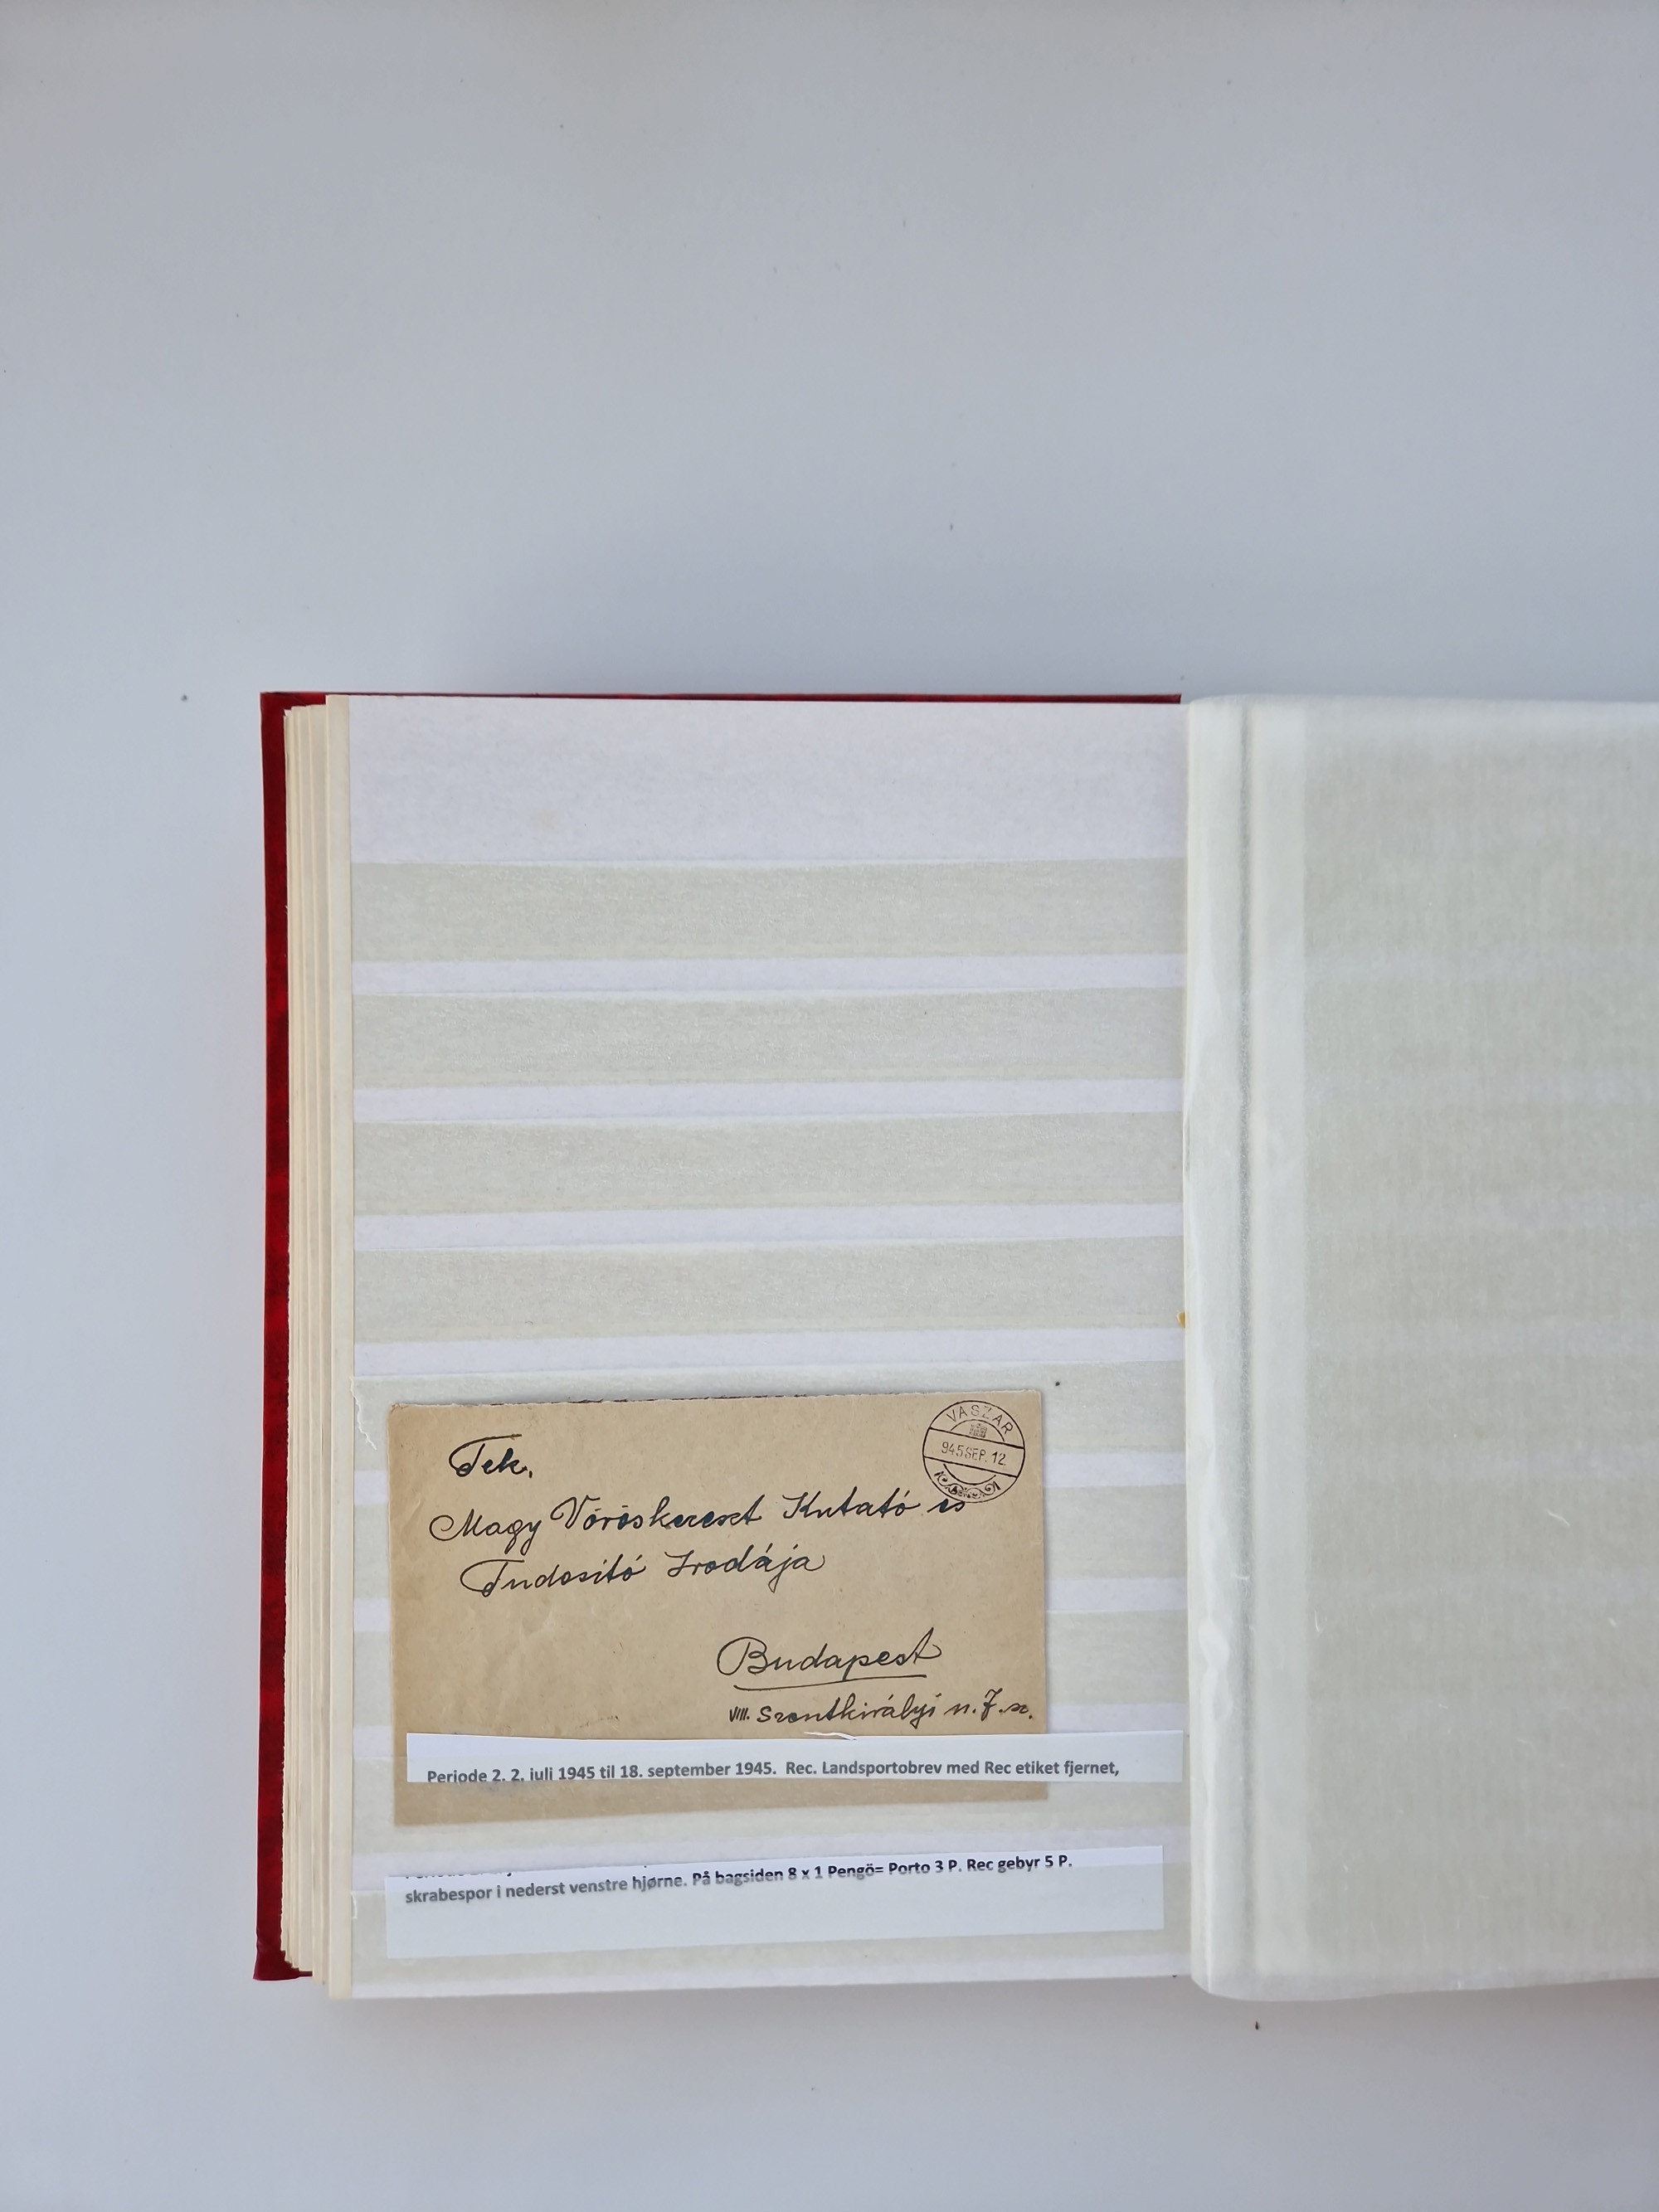 VASZAR
945 SEP. 12.
Tek.
Magy Vöröskereszt Kutató és
Tudositó Irodája
Budapest
VIII. Szentkirályi u. 7. sz.
Periode 2. 2. juli 1945 til 18. september 1945. Rec. Landsportobrev med Rec etiket fjernet,
skrabespor i nederst venstre hjørne. På bagsiden 8 x 1 Pengö= Porto 3 P. Rec gebyr 5 P.